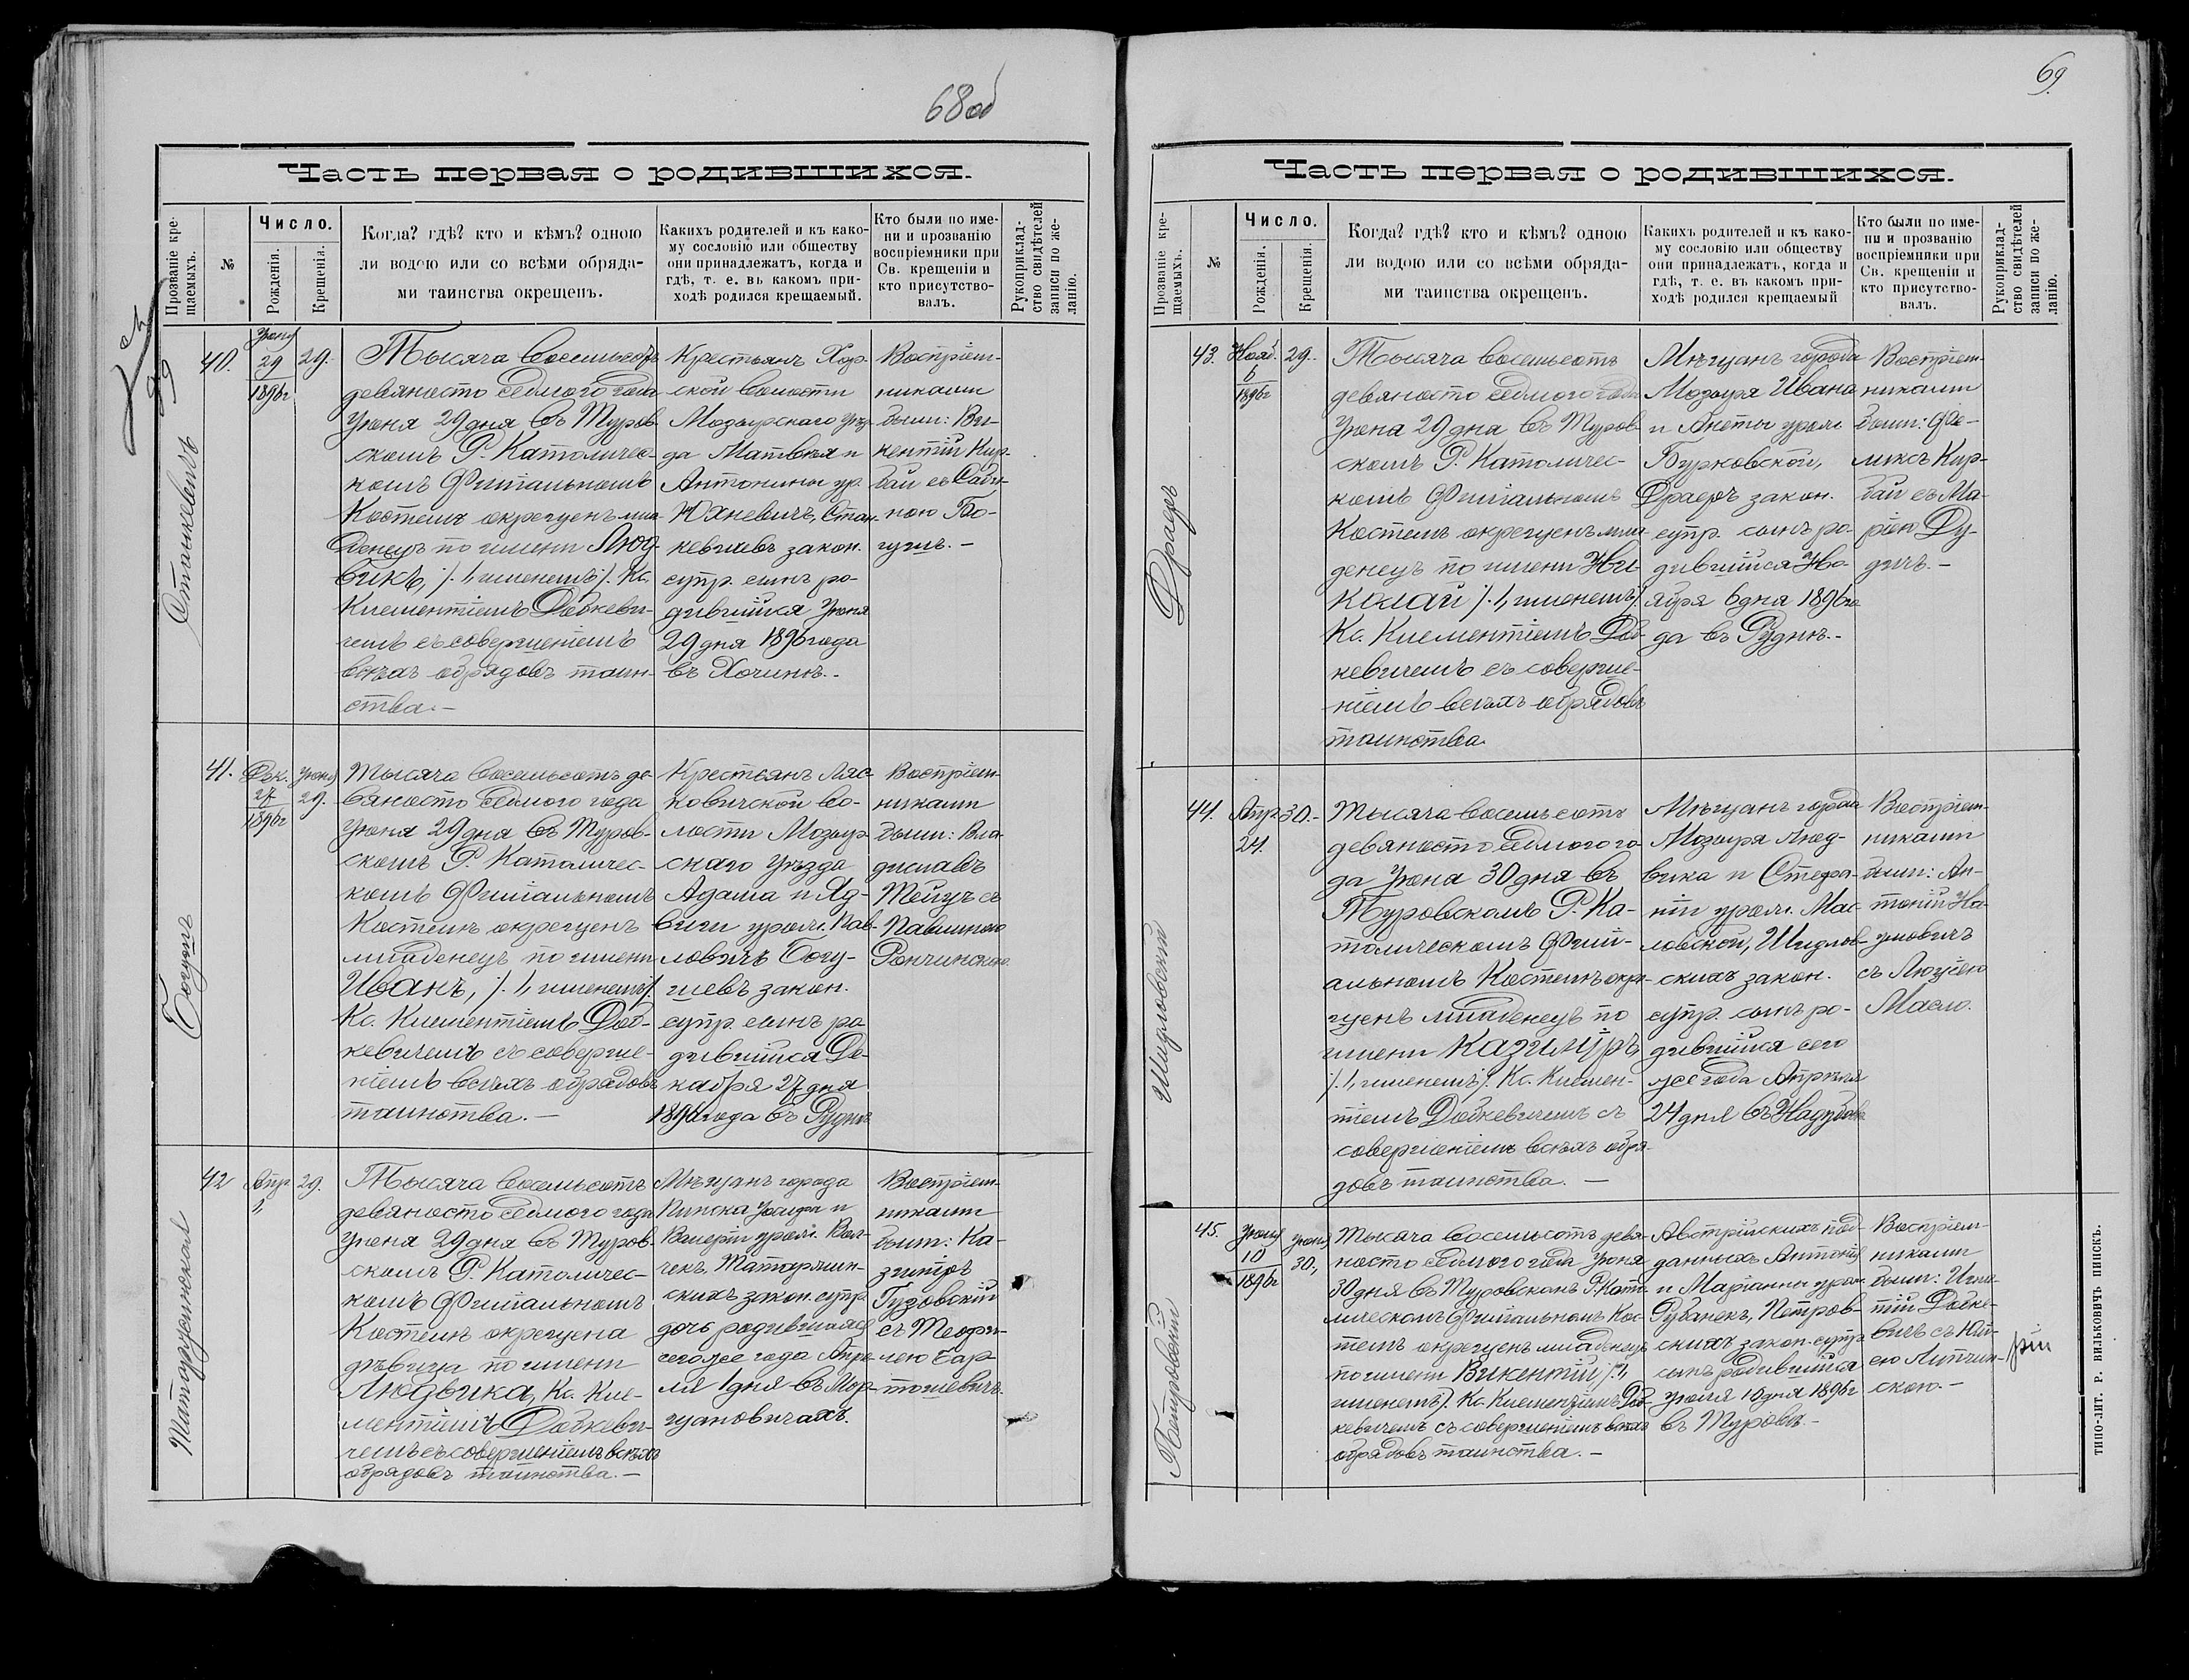 68 об
Часть первая о родившихся.
Прозваніе кре-
щаемыхъ.
№
Число.
Рожденія.
Крещенія.
Когда? гдѣ? кто и кѣмъ? одною
ли водою или со всѣми обряда-
ми таинства окрещенъ.
Какихъ родителей и къ како-
му сословію или обществу
они принадлежатъ, когда и
гдѣ, т. е. въ какомъ при-
ходѣ родился крещаемый.
Кто были по име-
ни и прозванію
воспріемники при
Св. крещеніи и
кто присутство-
валъ.
Рукоприклад-
ство свидѣтелей
записи по же-
ланію.
99
Станкевичъ
40.
Іюня
29
1896 г
29.
Тысяча восемьсотъ
девяносто седмого года
Іюня 29 дня въ Туров-
скомъ Р. Католичес-
комъ Филіальномъ
Костелѣ окрещенъ мла-
денецъ по имени Люд-
викъ, /. 1, именемъ /. Кс.
Климентіемъ Добкеви-
чемъ съ совершеніемъ
всѣхъ обрядовъ таин-
ства. —
Крестьянъ Хор-
ской волости
Мозырскаго уѣз-
да Матвѣя и
Антонины ур.
Юхневичъ, Стан-
кевичевъ закон.
супр. сынъ ро-
дившійся Іюня
29 дня 1896 года
въ Хочинѣ. -
Воспріем-
никами
были: Ви-
кентій Кир-
бай съ Саби-
ною Бо-
гушъ. —
Богушъ
41.
Дек.
27
1896 г
Іюня
29.
Тысяча восемьсотъ де-
вяносто седмого года
Іюня 29 дня въ Туров-
скомъ Р. Католичес-
комъ Филіальномъ
Костелѣ окрещенъ
младенецъ по имени
Иванъ, /. 1, именемъ /.
Кс. Климентіемъ Доб-
кевичемъ съ соверше-
ніемъ всѣхъ обрядовъ
таинства. —
Крестьянъ Ляс-
ковичской во-
лости Мозыр-
скаго уѣзда
Адама и Яд-
виги урожд. Пав-
ловичъ Богу-
шевъ закон.
супр. сынъ ро-
дившійся Де-
кабря 27 дня
1896 года въ Руднѣ
Воспріем-
никами
были: Вла-
диславъ
съ
Павлиною
Маторжинская
42
Апр
1,
29.
Тысяча восемьсотъ
девяносто седмого года
Іюня 29 дня въ Туров-
скомъ Р. Католичес-
комъ Филіальномъ
Костелѣ окрещена
дѣвица по имени
Людвика, Кс. Кли-
ментіемъ Добкеви-
чемъ съ совершеніемъ всѣхъ
обрядовъ таинства. —
Мѣщанъ города
Пинска Іосифа и
Валеріи урожд. Вол-
чекъ, Маторжин-
скихъ закон. супр.
дочь родившаяся
сего же года Апрѣ-
ля 1 дня въ Мор-
щановичахъ.
Воспріем-
никами
были: Ка-
зиміръ
Гузовскій
съ Теофи-
лею Бар-
тошевичъ
69.
Часть первая о родившихся.
Прозваніе кре-
щаемыхъ.
№
Число.
Рожденія.
Крещенія.
Когда? гдѣ? кто и кѣмъ? одною
ли водою или со всѣми обряда-
ми таинства окрещенъ.
Какихъ родителей и къ како-
му сословію или обществу
они принадлежатъ, когда и
гдѣ, т. е. въ какомъ при-
ходѣ родился крещаемый
Кто были по име-
ни и прозванію
воспріемники при
Св. крещеніи и
кто присутство-
валъ.
Рукоприклад-
ство свидѣтелей
записи по же-
ланію.
43.
Нояб.
6
1896 г
29.
Тысяча восемьсотъ
девяносто седмого года
Іюня 29 дня въ Туров-
скомъ Р. Католичес-
комъ Филіальномъ
Костелѣ окрещенъ мла-
денецъ по имени Ни-
колай /. 1, именемъ /.
Кс. Климентіемъ Доб-
кевичемъ съ соверше-
ніемъ всѣхъ обрядовъ
таинства.
Мѣщанъ города
Мозыря Ивана
и Анеты урожд.
Бурковской,
закон.
супр. сынъ ро-
дившійся Но-
ября 6 дня 1896 го-
да въ Руднѣ. -
Воспріем-
никами
были: Фе-
ликсъ Кир-
бай съ Ма-
ріею Ду-
дичъ. —
Шидловскій
44.
Апр
24.
30.-
Тысяча восемьсотъ
девяносто седмого го-
да Іюня 30 дня въ
Туровскомъ Р. Ка-
толическомъ Филі-
альномъ Костелѣ окре-
щенъ младенецъ по
имени Казиміръ
/. 1, именемъ /. Кс. Климен-
тіемъ Добкевичемъ съ
совершеніемъ всѣхъ обря-
довъ таинства. —
Мѣщанъ города
Мозыря Люд-
вика и Стефа-
ніи урожд. Мас-
ловской, Шидлов-
скихъ закон.
супр. сынъ ро-
дившійся сего
же года Апрѣля
24 дня въ
Воспріем-
никами
были: Ан-
тоній На-
умовичъ
съ Люціею
Масло.
Петровскій
45.
Іюня
10
1896 г
Іюня
30,
Тысяча восемьсотъ девя-
носто седмого года Іюня
30 дня въ Туровскомъ Р. Като-
лическомъ Филіальномъ Кос-
телѣ окрещенъ младенецъ
по имени Викентій /. 1,
именемъ /. Кс. Климентіемъ Доб-
кевичемъ съ совершеніемъ всѣхъ
обрядовъ таинства. —
Австрійскихъ под-
данныхъ Антонія
и Маріанны урож.
Рубанекъ, Петров-
скихъ закон. супр.
сынъ родившійся
Іюня 10 дня 1896 г
въ Туровѣ. —
Воспріем-
никами
были: Игна-
тій Добке-
вичъ съ Юлі-
ею Липчин-
скою. —
ТИПО-ЛИТ. Р. ВИЛЬКОВИЧЪ ПИНСКЪ.